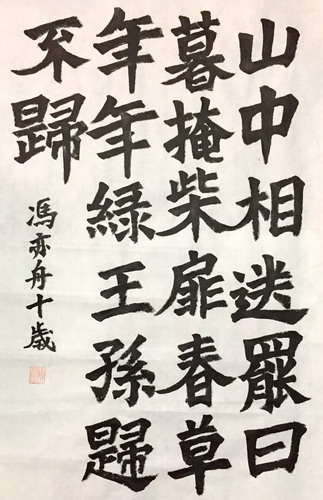 山中相送罷日
暮掩柴扉春草
年年綠王孫歸
不歸
馮亦舟十歲